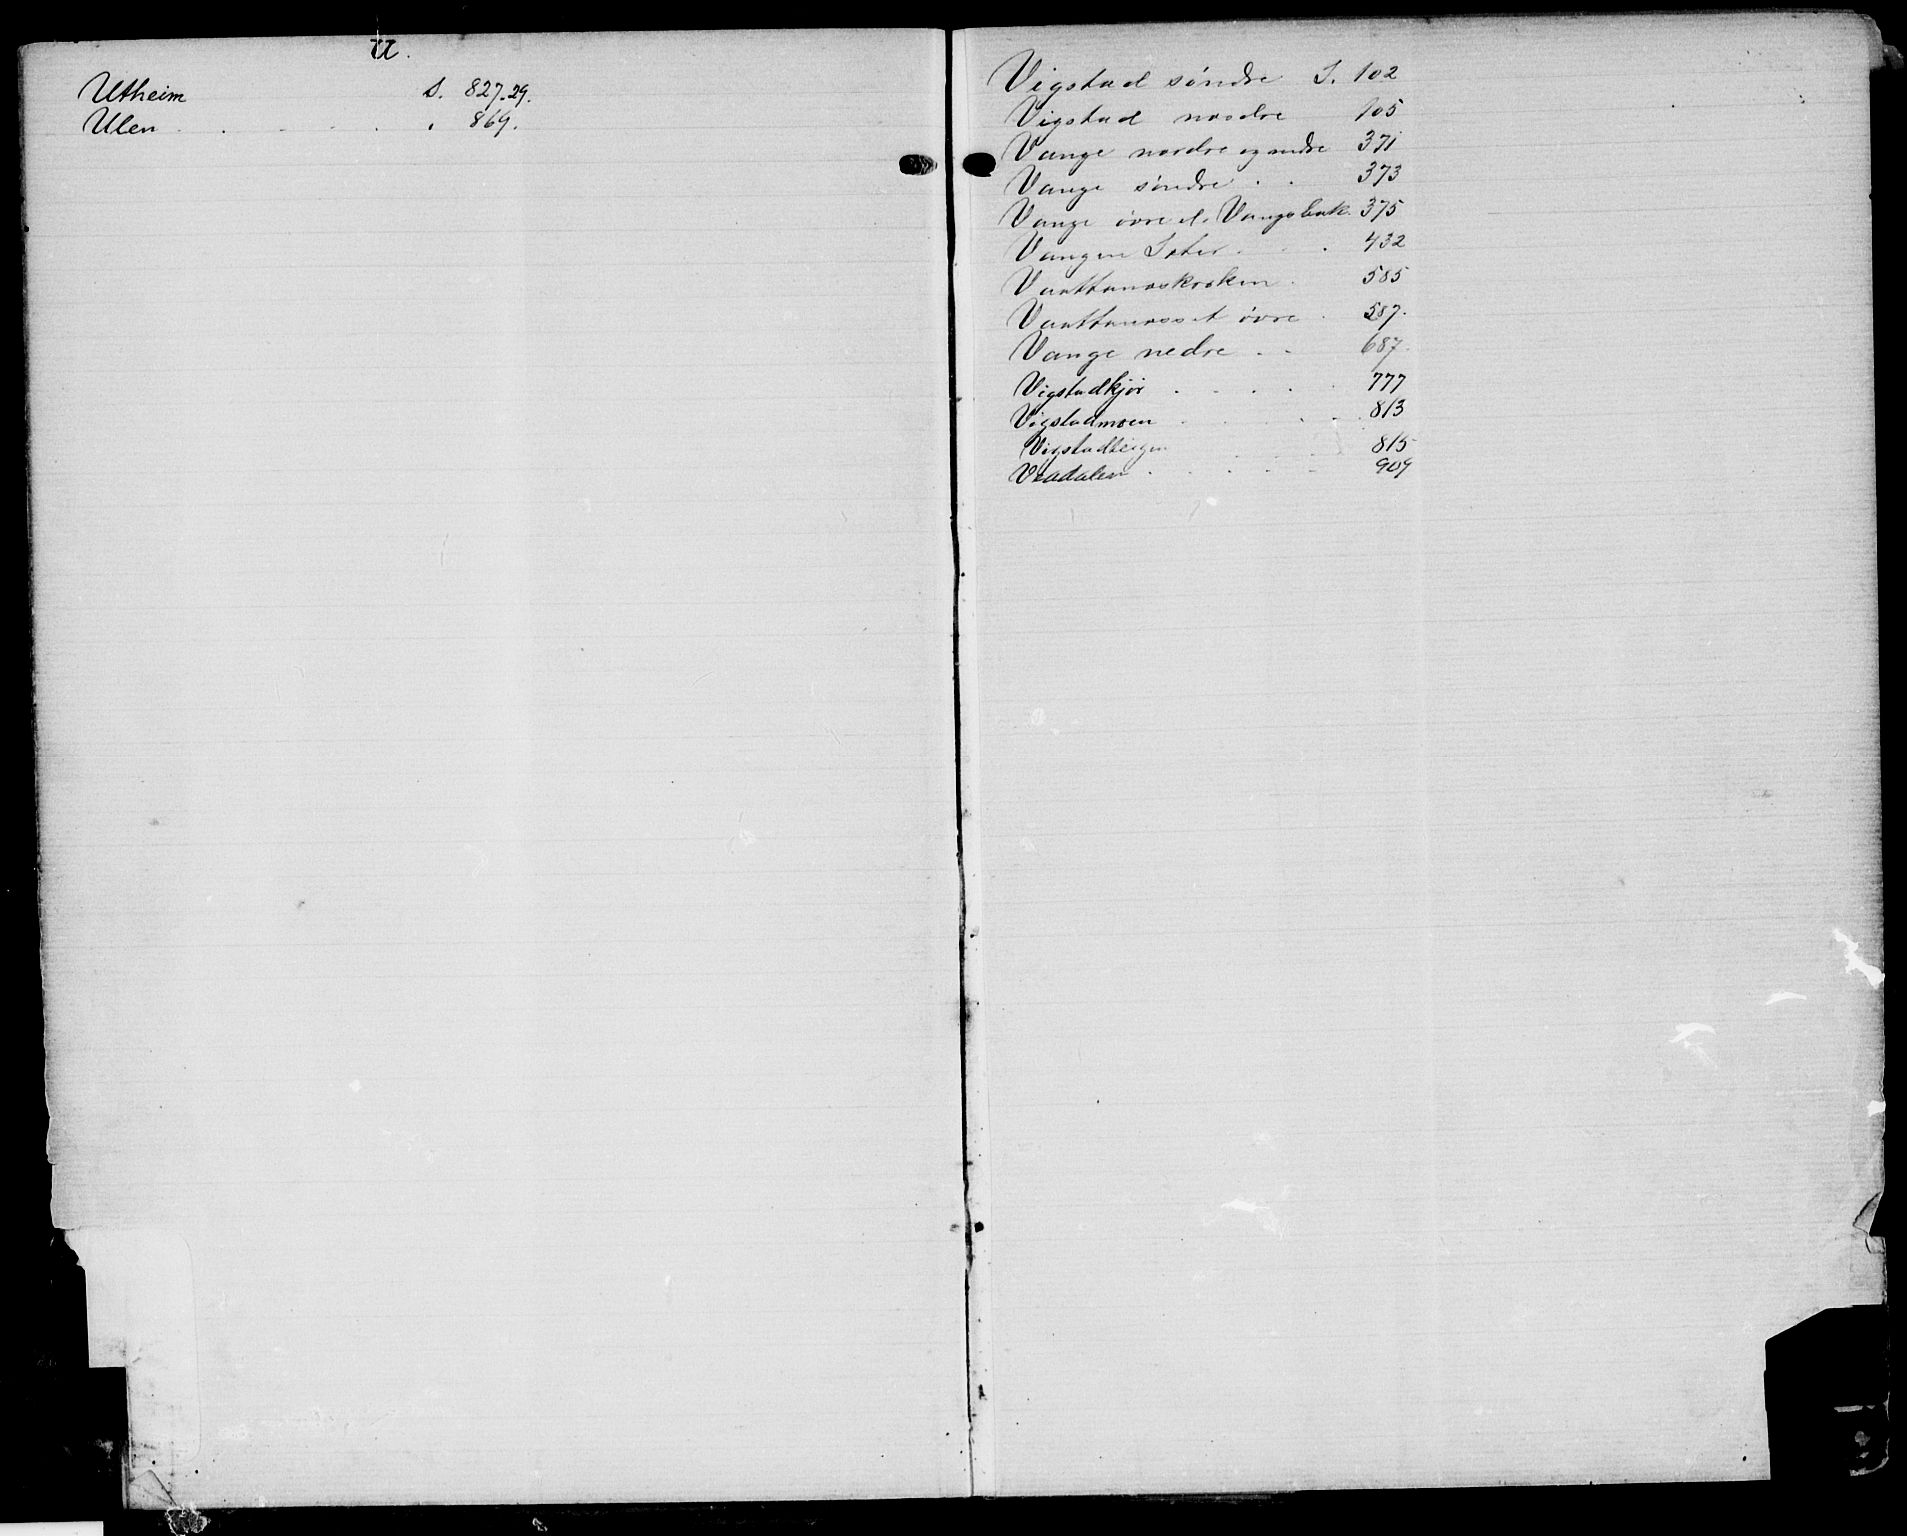 U.
Utheim S. 827.29.
Ulen . . . . . . 869.
Vigstad söndre S. 102
Vigstad nordre 105
Vange nordre og 371
Vange söndre . . 373
Vange övre el. Vangsbak. 375
Vangen Sæter . . 432
Vaattanaskroken . 585
Vaattanaaset övre . 587.
Vange nedre . . 687.
Vigstadkjör . . . . 777
Vigstadmoen . . . . 813
Vigstadteigen . . . . 815
Vradalen . . . . . 909